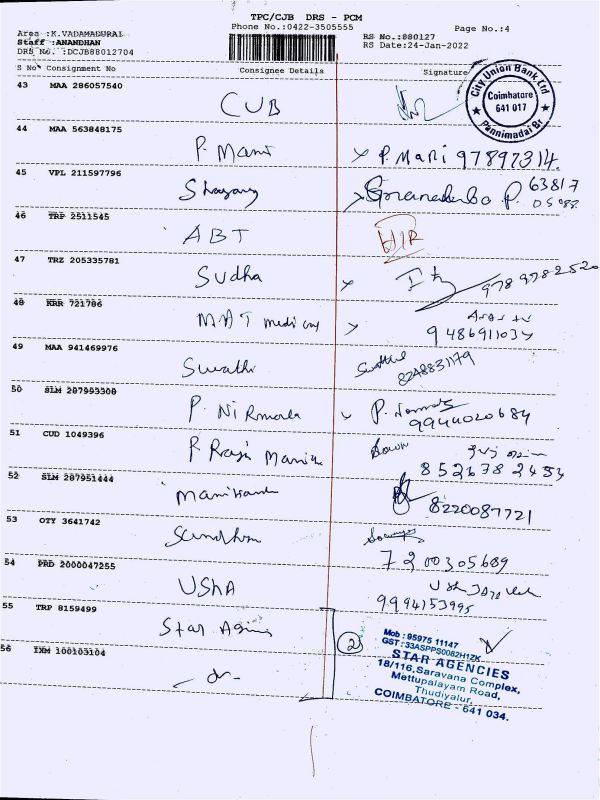 TPC/CJB DRS - PCM
Phone No.:0422-3505555 Page No.:4
Area :K.VADAMADURAI
Staff :ANANDHAN
DRS No. :DCJB88012704
RS No.:880127
RS Date:24-Jan-2022
S No Consignment No Consignee Details Signature
City Union Bank Ltd
Coimbatore
641 017
Pannimadai Br
43 MAA 286057540 CUB
44 MAA 563848175 P. Mani P. MaRi 97897314.
45 VPL 211597796 P. 63817
46 TRP 2511545 ABT
47 TRZ 205335781 Sudha 9789782520
48 KRR 721786 MAT medical
9486911034
49 MAA 941469976 Swathi
8248831179
50 SLM 287993308 P. NiRmala P.
9944020684
51 CUD 1049396 P Raji
8526782454
52 SLM 287951444 Manikanda 8220087721
53 OTY 3641742
7200305689
54 PRD 2000047255 USHA
9994153995
55 TRP 8159499 Star
56 IXM 100103104 - do - 2
Mob : 95975 11147
GST : 33ASPPS0082H1ZK
STAR AGENCIES
18/116, Saravana Complex,
Mettupalayam Road,
Thudiyalur,
COIMBATORE - 641 034.